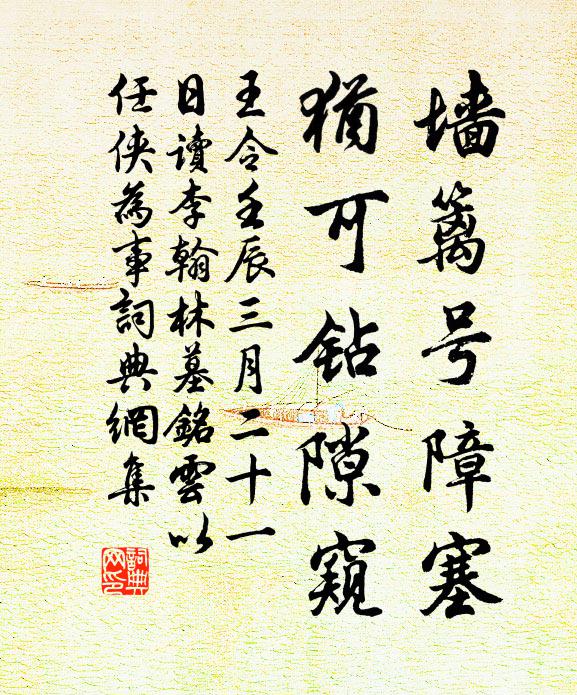 墙篱号障塞
犹可钻隙窥
王令壬辰三月二十一
日读李翰林墓銘雲以
任侠為事詞典網集
詞典
网印